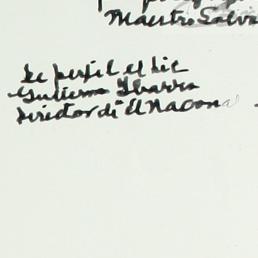 Maestro Salva
De perfil el Lic
Guillermo Ibarra
Director de El Naciona